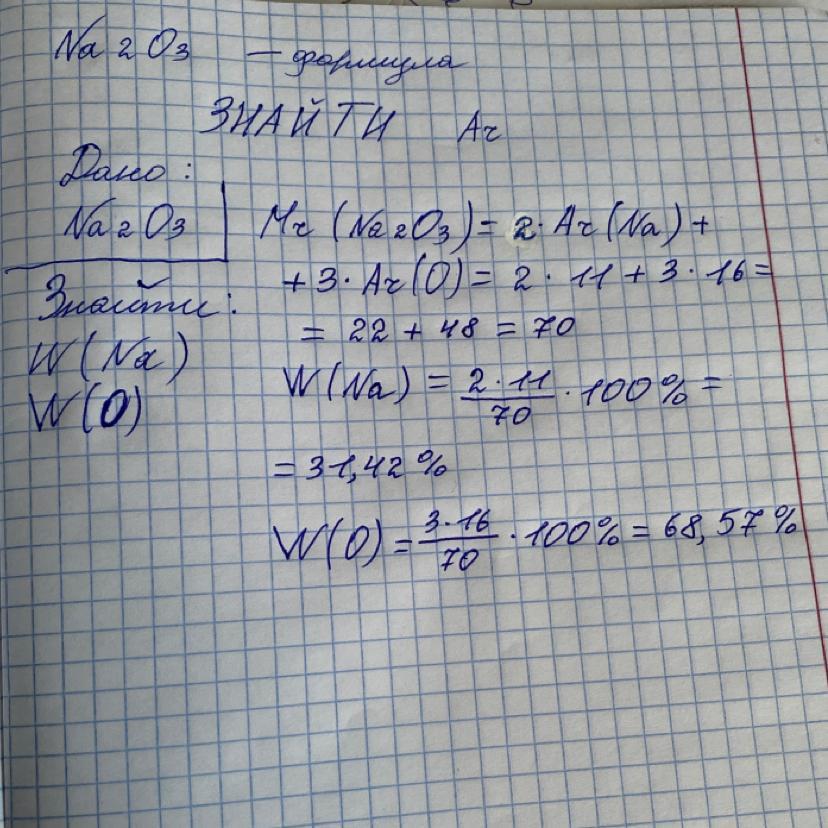 Na2O3 — формула
ЗНАЙТИ Ar
Дано:
Na2O3
Знайти:
W(Na)
W(O)
Mr (Na2O3) = 2·Ar(Na) +
+ 3·Ar(O) = 2·11 + 3·16 =
= 22 + 48 = 70
W(Na) = 2·11/70 · 100% =
= 31,42%
W(O) = 3·16/70 · 100% = 68,57%